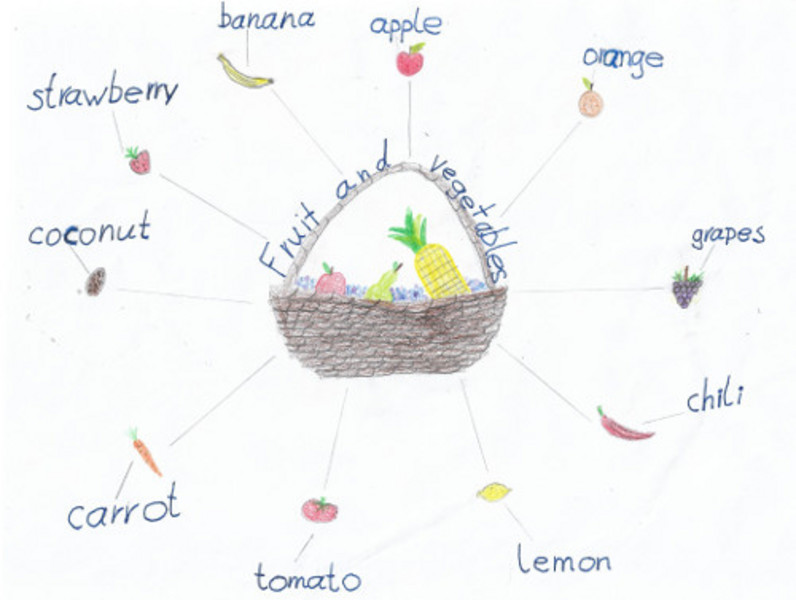 banana
apple
orange
strawberry
Fruit and vegetables
coconut
grapes
chili
carrot
tomato
lemon